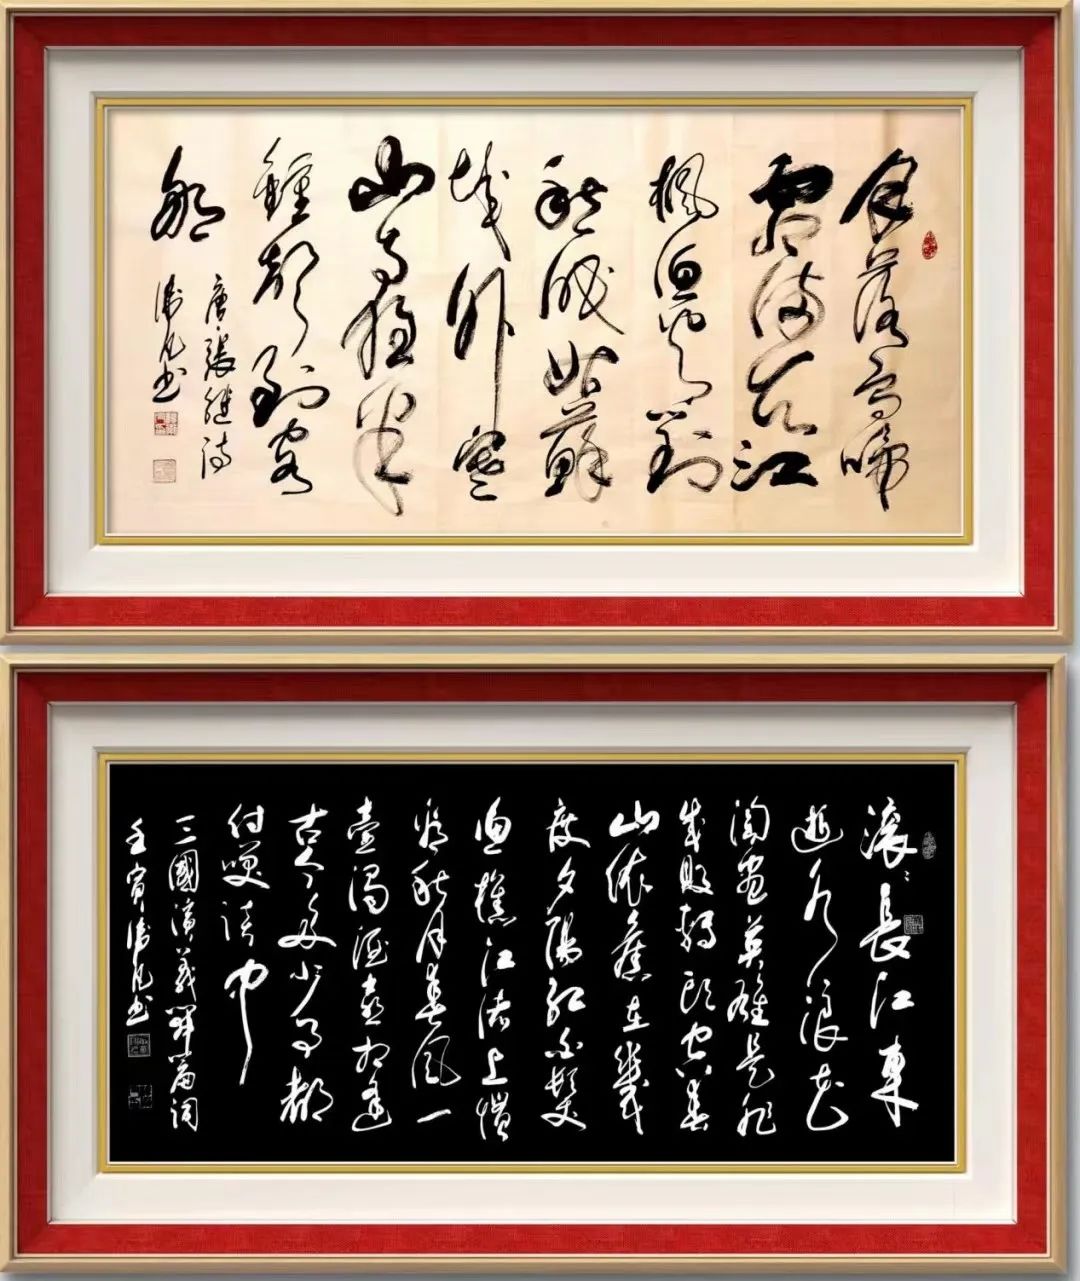 月落烏啼
霜滿天江
楓漁火對
愁眠姑蘇
城外寒
山寺夜半
鐘聲到客
船
唐張継詩
凡书
滾滾長江東
逝水浪花
淘盡英雄是非
成敗轉頭空青
山依舊在幾
度夕陽紅白髮
漁樵江渚上慣
看秋月春風一
壺濁酒喜相逢
古今多少事都
付笑談中
三國演義開篇詞
壬寅凡书